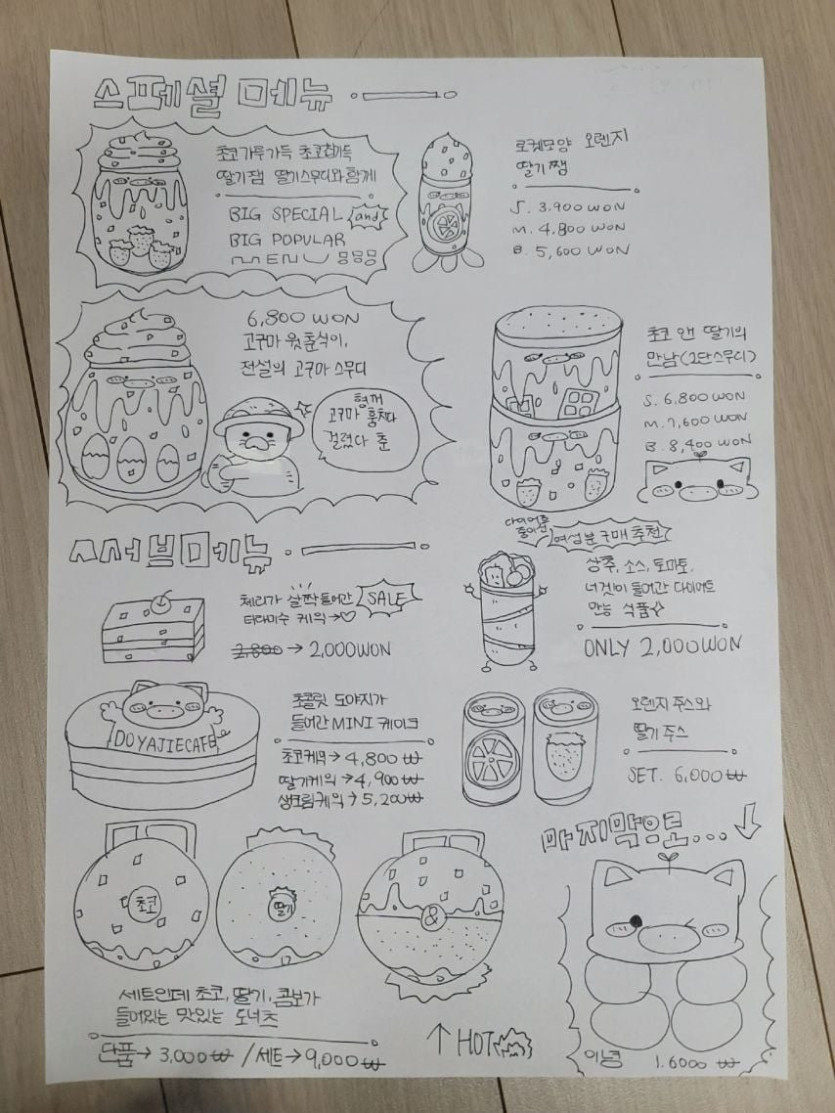 스페셜 메뉴
초코가루가득 초코칩가득
딸기잼 딸기스무디와 함께
BIG SPECIAL and
BIG POPULAR
MENU
로켓모양 오렌지
딸기 쨈
S. 3,900 WON
M. 4,800 WON
B. 5,600 WON
6,800 WON
고구마 윗 춘식이,
전설의 고구마 스무디
형꺼
고구마 훔치다
걸렸다 춘
초코 앤 딸기의
만남(2단스무디)
S. 6,800 WON
M. 7,600 WON
B. 8,400 WON
써브메뉴
체리가 살짝 들어간 SALE
티라미수 케익→♡
2,800 → 2,000WON
여성분 구매 추천
상추, 소스, 토마토,
너겟이 들어간 다이어트
만능 식품
ONLY 2,000WON
DOYAJIECAFE
초콜릿 도야지가
들어간 MINI 케이크
초코케익→ 4,800₩
딸기케익→ 4,900₩
생크림케익→ 5,200₩
오렌지 주스와
딸기 주스
SET. 6,000₩
마지막으로...
초코
딸기
&
세트인데 초코, 딸기, 콤보가
들어있는 맛있는 도너츠
단품→ 3,000₩ / 세트→ 9,000₩
↑ HOT
1.6000 ₩